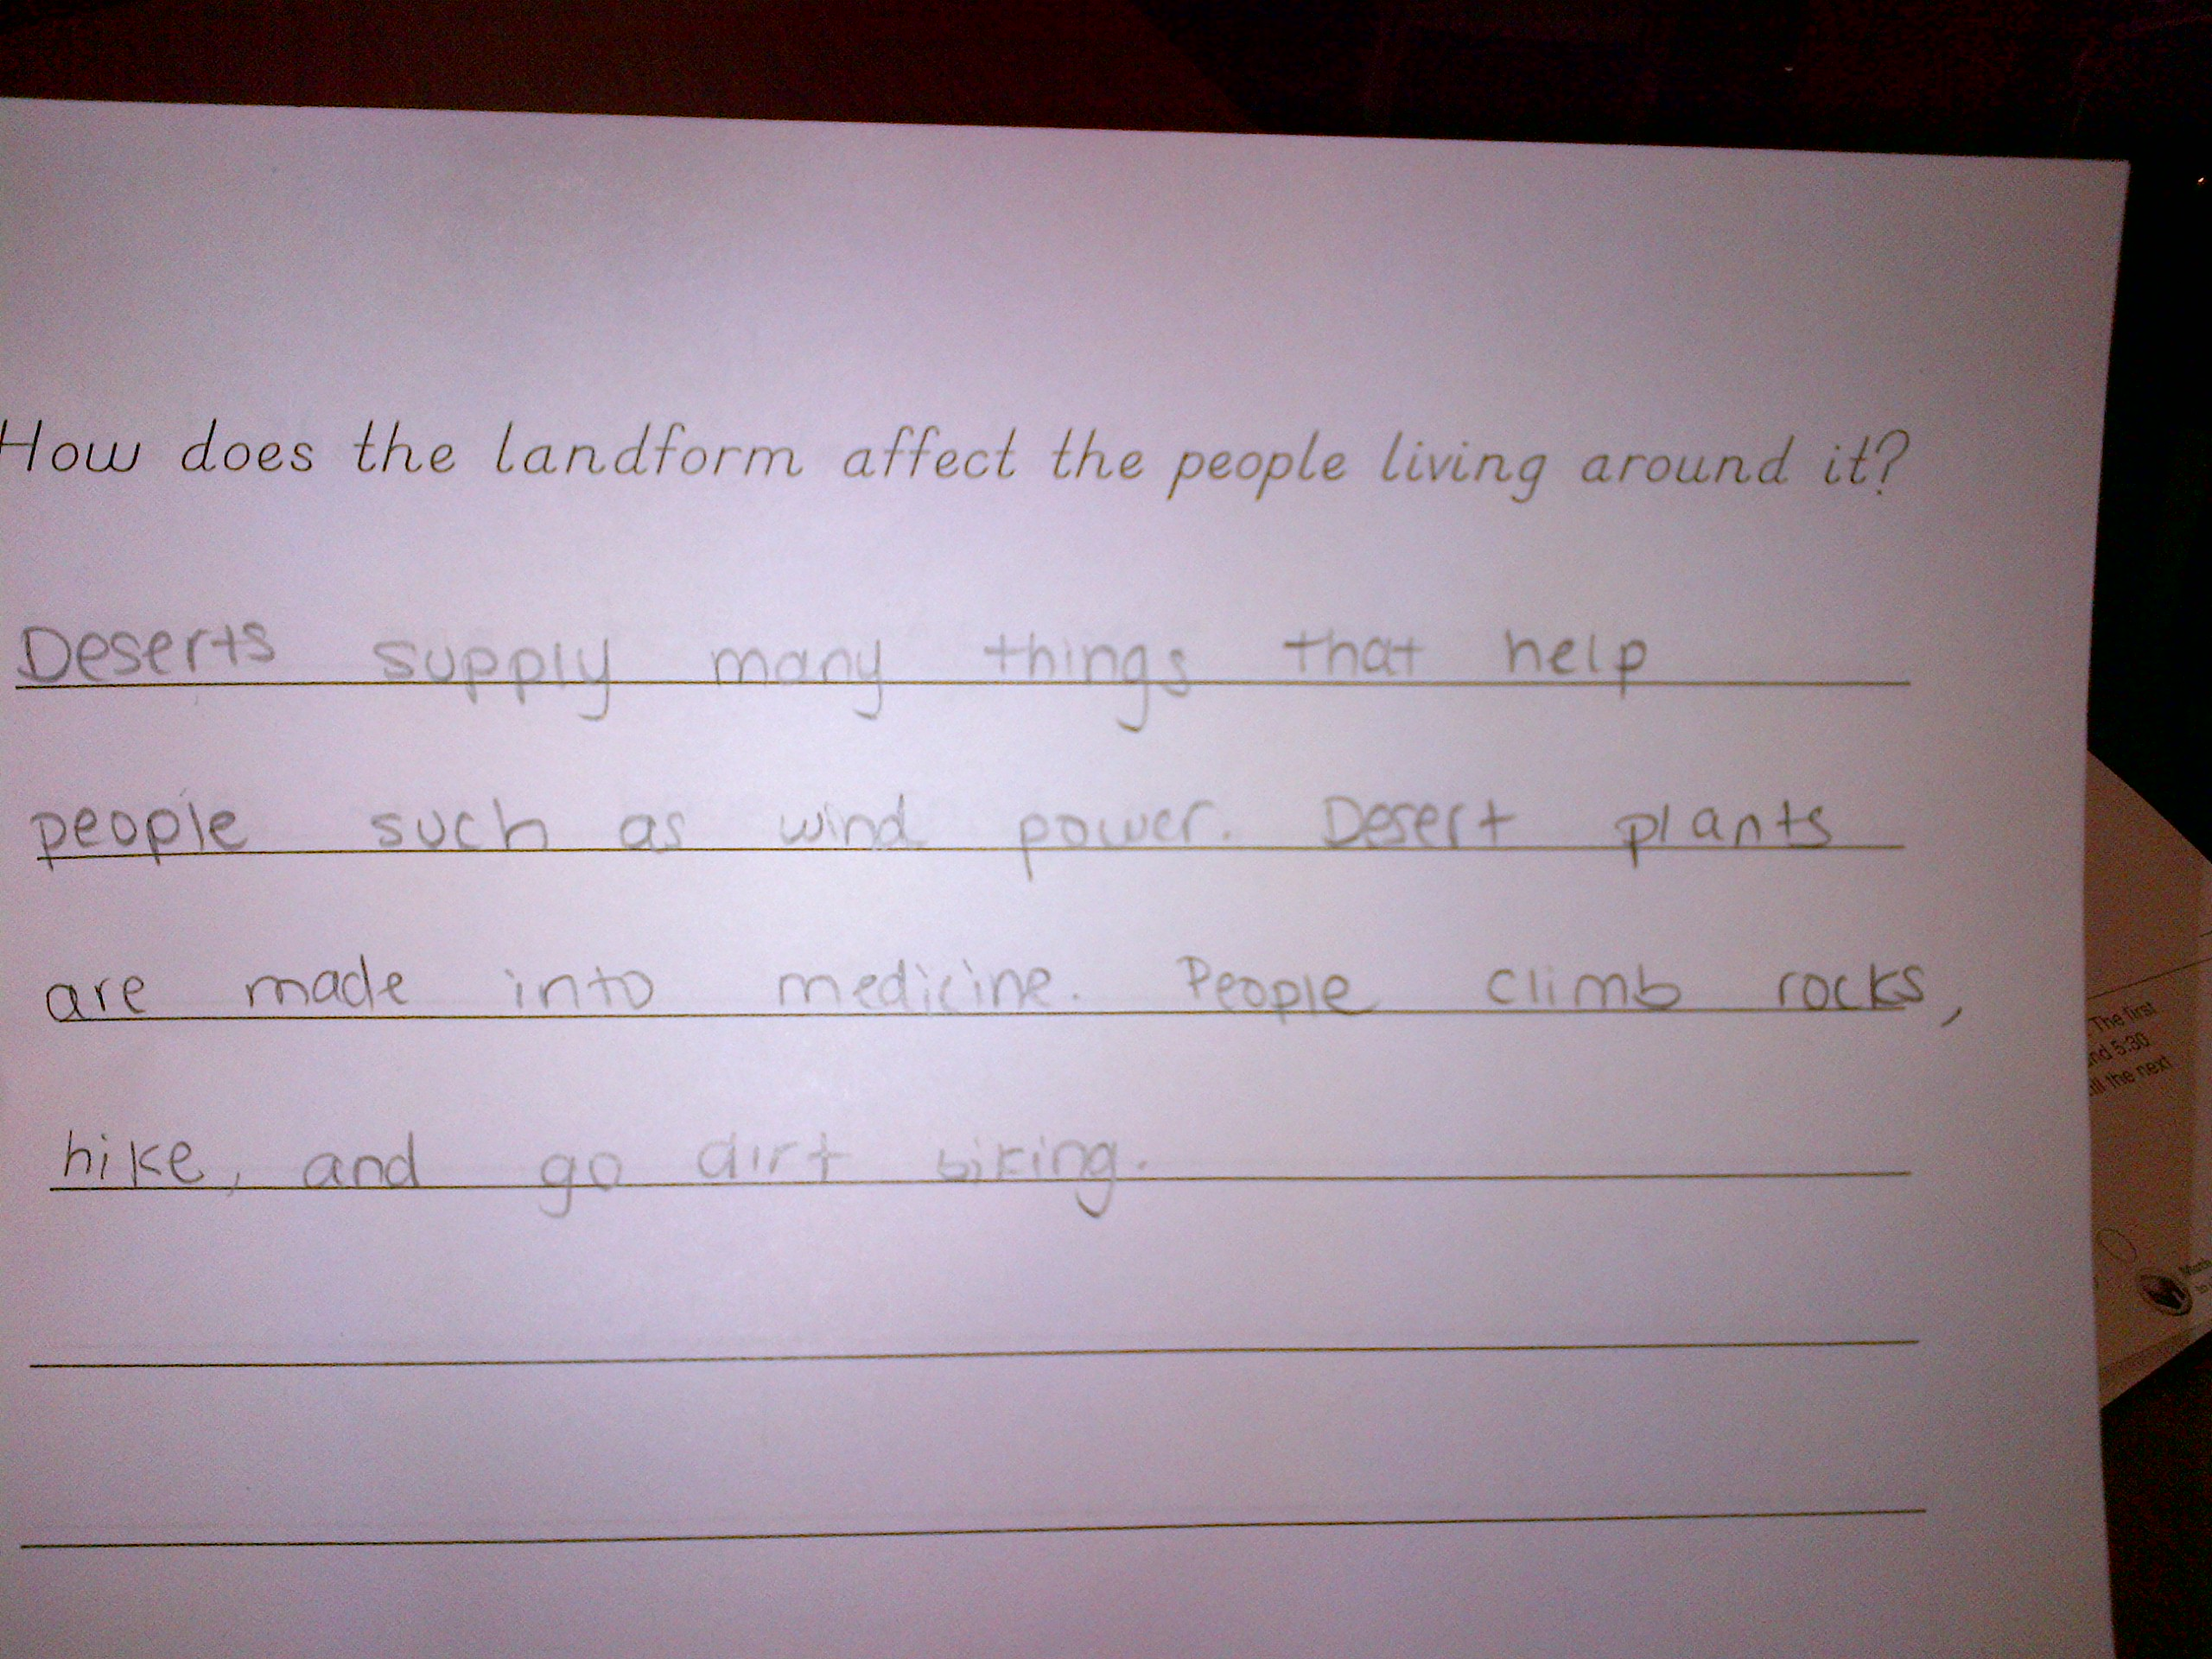 How does the landform affect the people living around it?
Deserts supply many things that help
people such as wind power. Desert plants
are made into medicine. People climb rocks,
hike, and go dirt biking.
The first
5:30
the next